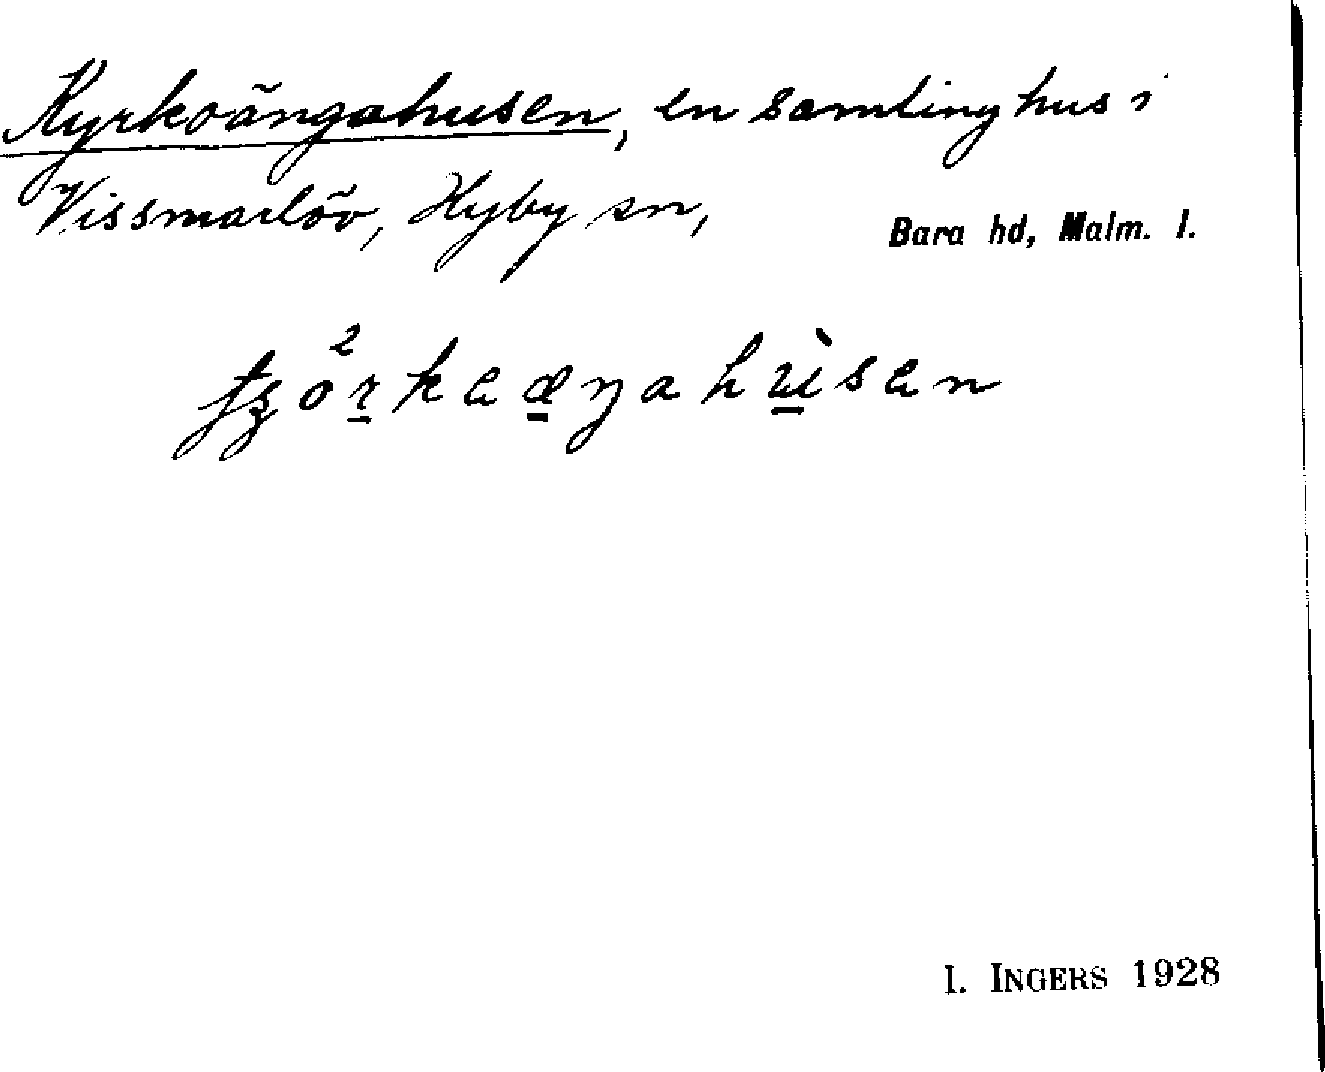 Kyrkoängahusen, en samling hus i
Vissmarlöv, Hyby sn, Bara hd, Malm. l.
I. INGERS 1928